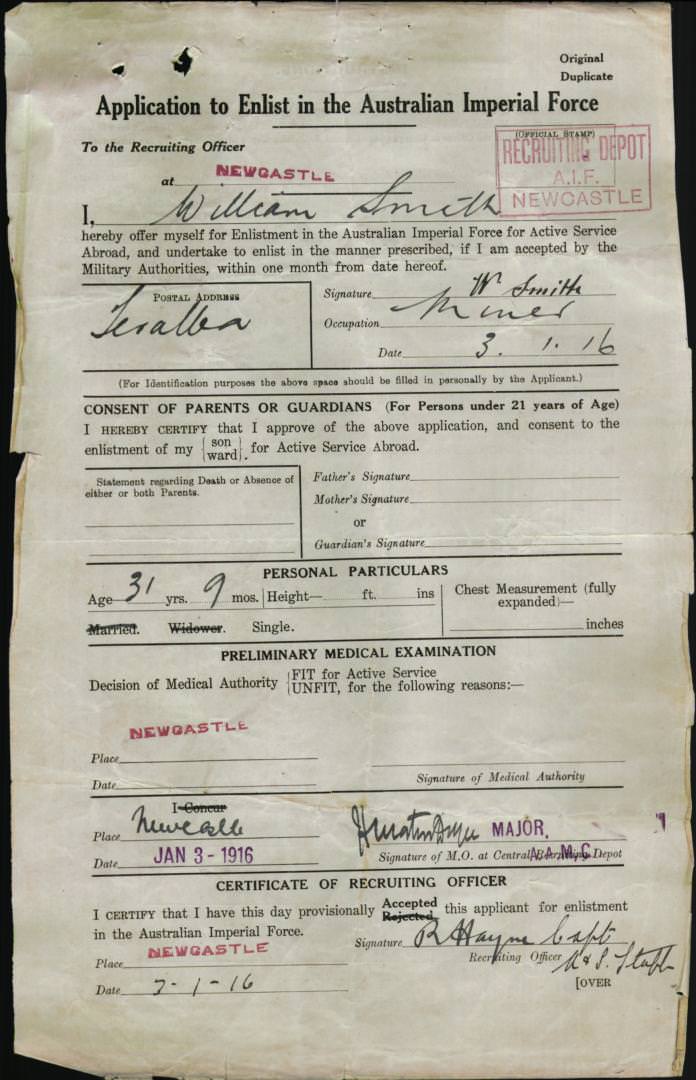 Original
Duplicate
Application to Enlist in the Australian Imperial Force
(OFFICIAL STAMP)
RECRUITING DEPOT
A.I.F.
NEWCASTLE
To the Recruiting Officer
at NEWCASTLE
I, William Smith
hereby offer myself for Enlistment in the Australian Imperial Force for Active Service
Abroad, and undertake to enlist in the manner prescribed, if I am accepted by the
Military Authorities, within one month from date hereof.
POSTAL ADDRESS
Teralba
Signature W Smith
Occupation Miner
Date 3. 1. 16
(For Identification purposes the above space should be filled in personally by the Applicant.)
CONSENT OF PARENTS OR GUARDIANS (For Persons under 21 years of Age)
I HEREBY CERTIFY that I approve of the above application, and consent to the
enlistment of my {son ward}. for Active Service Abroad.
Statement regarding Death or Absence of
either or both Parents.
Father's Signature
Mother's Signature
or
Guardian's Signature
PERSONAL PARTICULARS
Age 31 yrs. 9 mos. Height— ft. ins
Chest Measurement (fully
expanded)—
inches
Married. Widower. Single.
PRELIMINARY MEDICAL EXAMINATION
Decision of Medical Authority {FIT for Active Service
{UNFIT, for the following reasons:—
NEWCASTLE
Place
Date
Signature of Medical Authority
I Concur
Place Newcastle
Date JAN 3-1916
MAJOR,
A.A.M.C.
Signature of M.O. at Central Recruiting Depot
CERTIFICATE OF RECRUITING OFFICER
I CERTIFY that I have this day provisionally Accepted Rejected this applicant for enlistment
in the Australian Imperial Force.
Signature R Hayne Capt
Recruiting Officer
Place NEWCASTLE
Date 3-1-16
[OVER